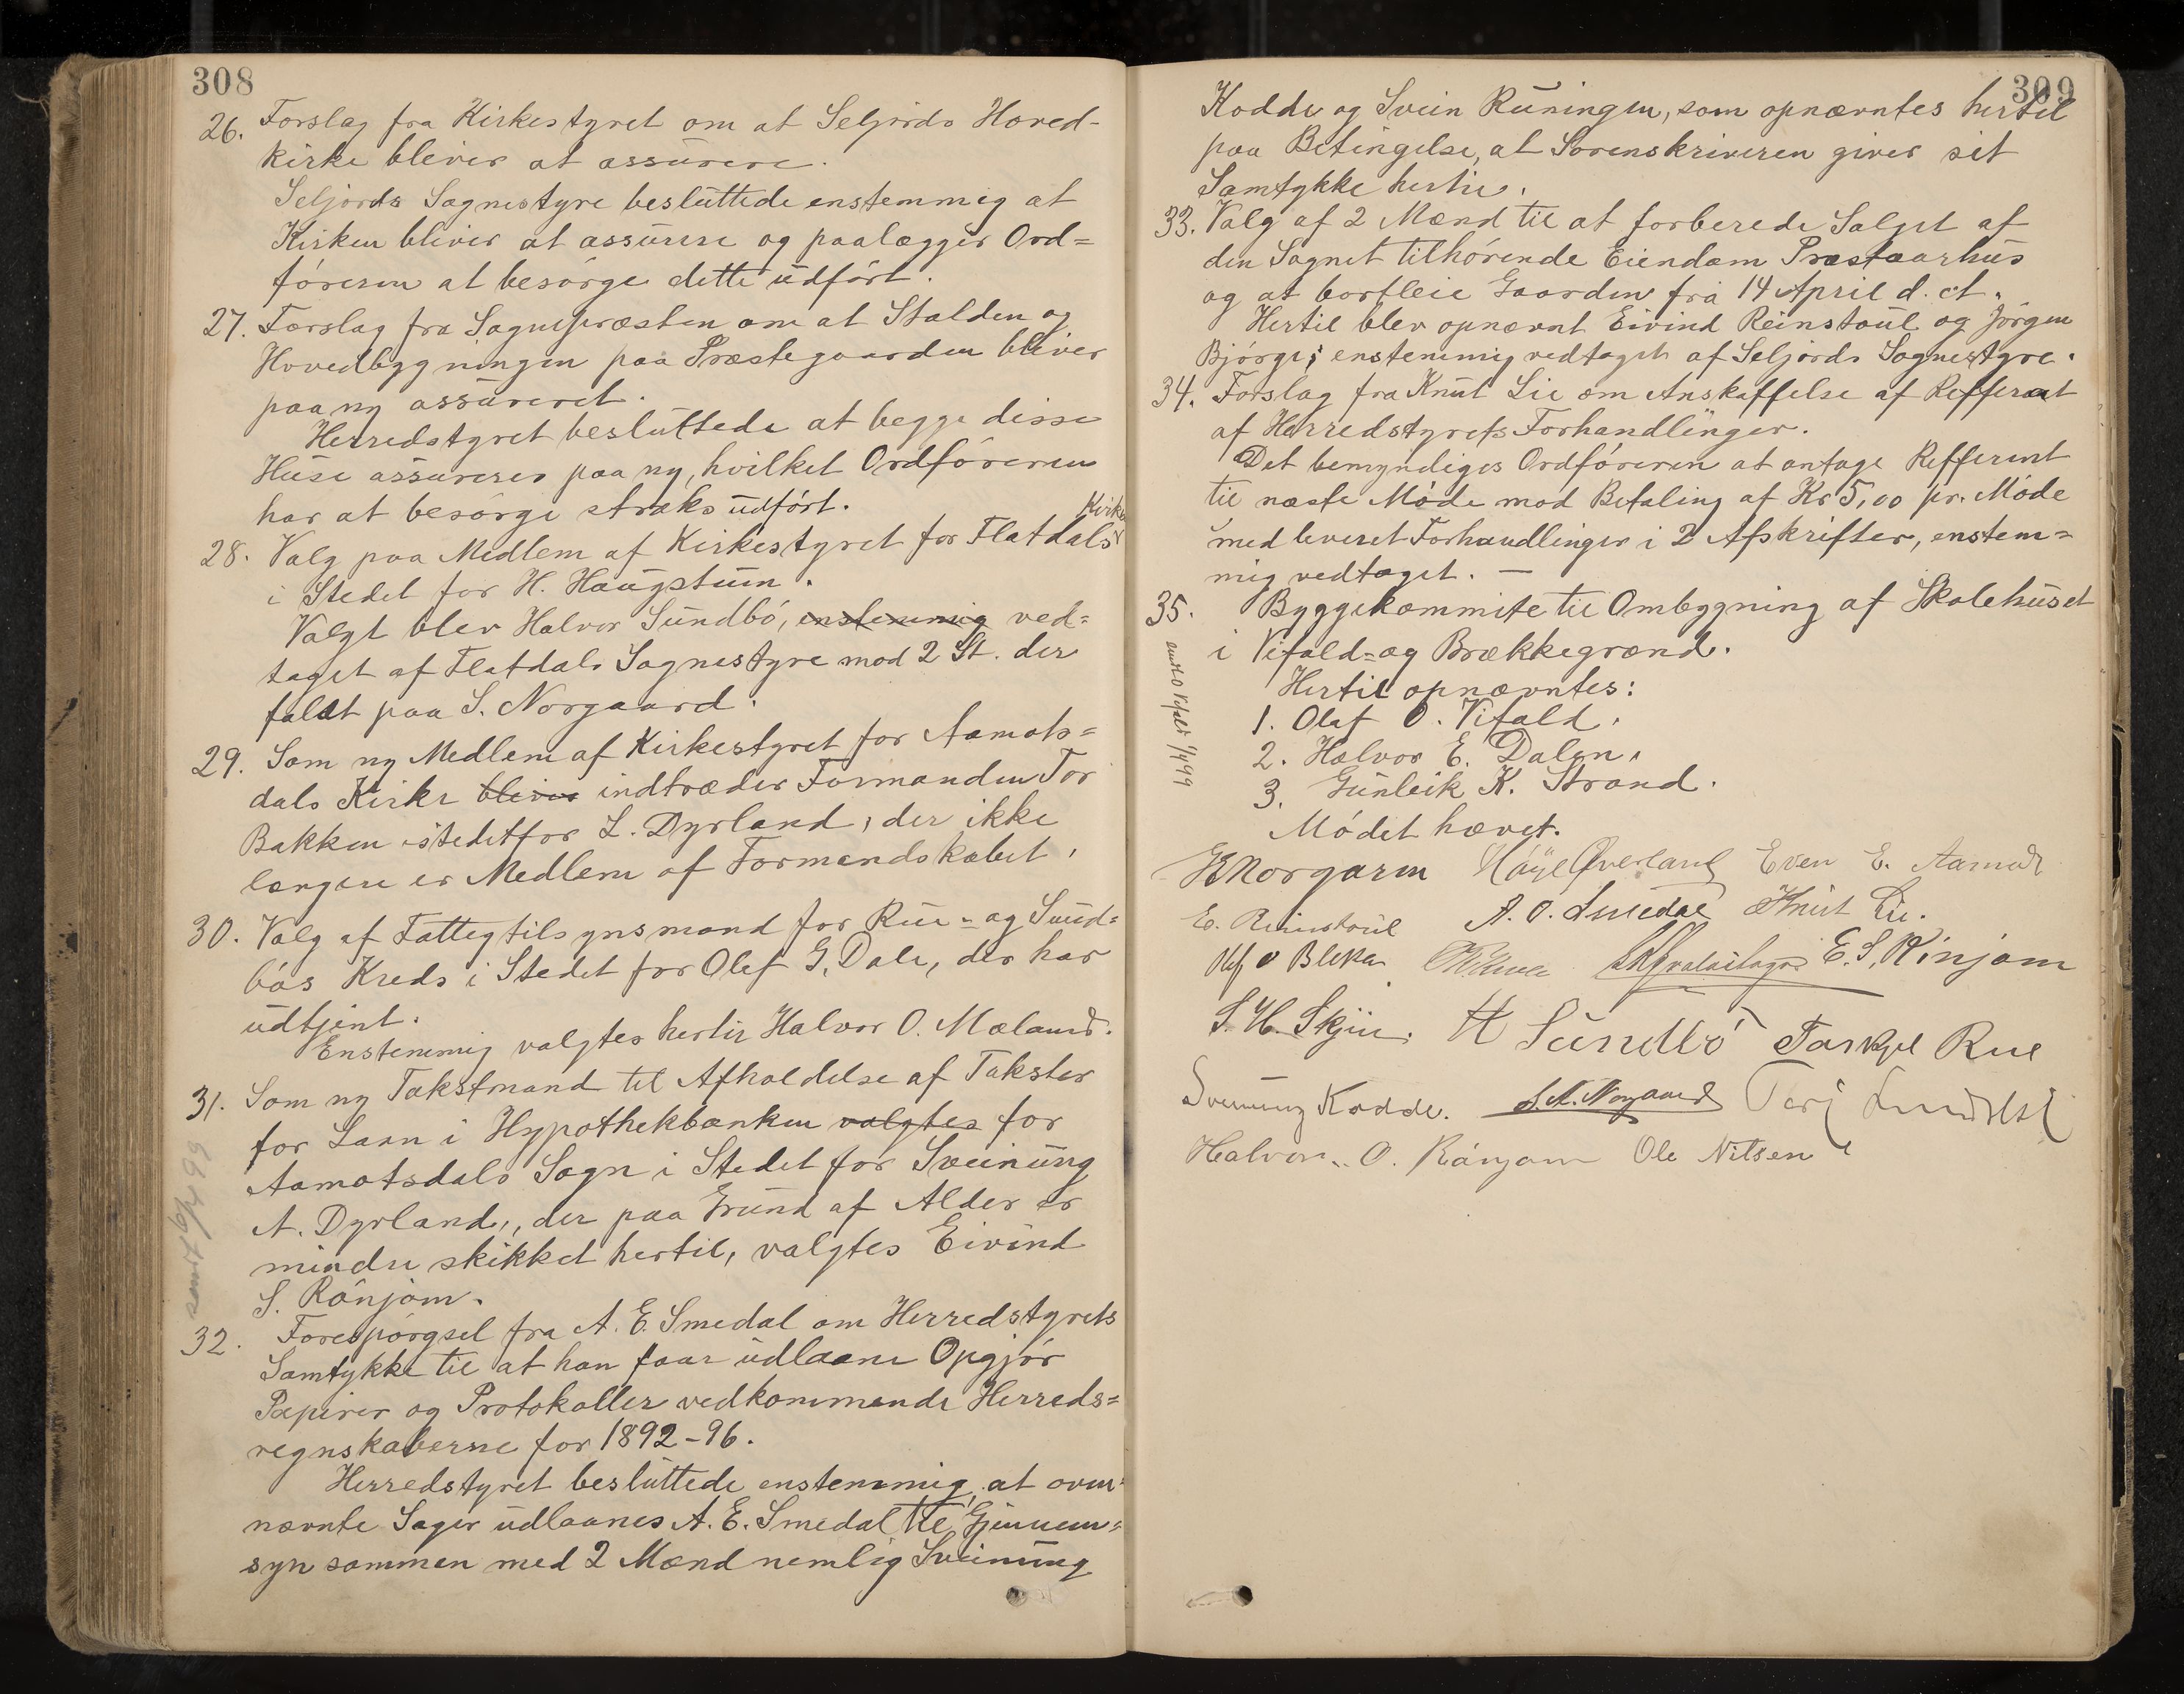 308
26. Forslag fra Kirkestyret om at Seljords Hoved-
kirke bliver at assurere.
Seljords Sognestyre besluttede enstemmig at
Kirken bliver at assurere og paalægger Ord=
føreren at besørge dette udført.
27. Forslag fra Sognepræsten om at Stalden og
Hovedbygningen paa Præstegaarden bliver
paa ny assureret.
Herredstyret besluttede at begge disse
Huse assureres paa ny, hvilket Ordføreren
har at besørge straks udført.
28. Valg paa Medlem af Kirkestyret for Flatdals Kirke
i Stedet for H. Haugstuen.
Valgt blev Halvor Sundbö, enstemmig ved=
taget af Flatdals Sognestyre mod 2 St. der
faldt paa S. Norgaard.
29. Som ny Medlem af Kirkestyret for Aamots=
dals Kirke bliver indtræder Formanden Tor
Bakken istedetfor L. Dyrland, der ikke
længere er Medlem af Formandskabet,
30. Valg af Fattigtilsynsmand for Rue- og Sund=
bös Kreds i Stedet for Olef G. Dale, der har
udtjent.
Enstemmig valgtes hertil Halvor O. Mæland.
31. Som ny Takstmand til Afholdelse af Takster
for Laan i Hypothekbanken valgtes for
Aamotsdals Sogn i Stedet for Sveinung
A. Dyrland, der paa Grund af Alder er
mindre skikket hertil, valgtes Eivind
S. Rönjom.
sendt 6/4 99
32. Forespørgsel fra A. E. Smedal om Herredstyrets
Samtykke til at han faar udlaane Opgjør
Papirer og Protokoller vedkommende Herreds=
regnskaberne for 1892-96.
Herredstyret besluttede enstemmig, at oven=
nævnte Sager udlaanes A. E. Smedal til Gjennem=
syn sammen med 2 Mænd nemlig Sveinung
309
Kodde og Svein Runingen, som opnævntes hertil
paa Betingelse, at Sorenskriveren giver sit
Samtykke hertil.
33. Valg af 2 Mænd til at forberede Salget af
den Sognet tilhørende Eiendom Præstaarhus
og at bortleie Gaarden fra 14 April d. ct.
Hertil blev opnævnt Eivind Reinstoul og Jørgen
Bjørge; enstemmig vedtaget af Seljords Sognestyre.
34. Forslag fra Knut Lie om Anskaffelse af Refferat
af Herredstyrets Forhandlinger.
Det bemyndiges Ordføreren at antage Refferent
til næste Møde mod Betaling af Kr 5,00 pr. Møde
med leveret Forhandlinger i 2 Afskrifter, enstem=
mig vedtaget. —
35. Byggekommite til Ombygning af Skolehuset
i Vefald= og Brækkegrænd.
Hertil opnævntes:
1. Olaf O. Vefald.
2. Halvor E. Dalen.
3. Gunleik K. Strand.
Vefald 1/4 99
Mödet hævet.
Norgaren Höye Øverland Even E. Aamot
E. Reinstoul A. O. Smedal Knut Lie.
Olef O Bleka E. S. Rönjom
S. H. Skjei. H Sundbö Tarkjel Rue
Sveinung Kodde. S. A. Norgaard Terj
Halvor O. Rönjom Ole Nilsen